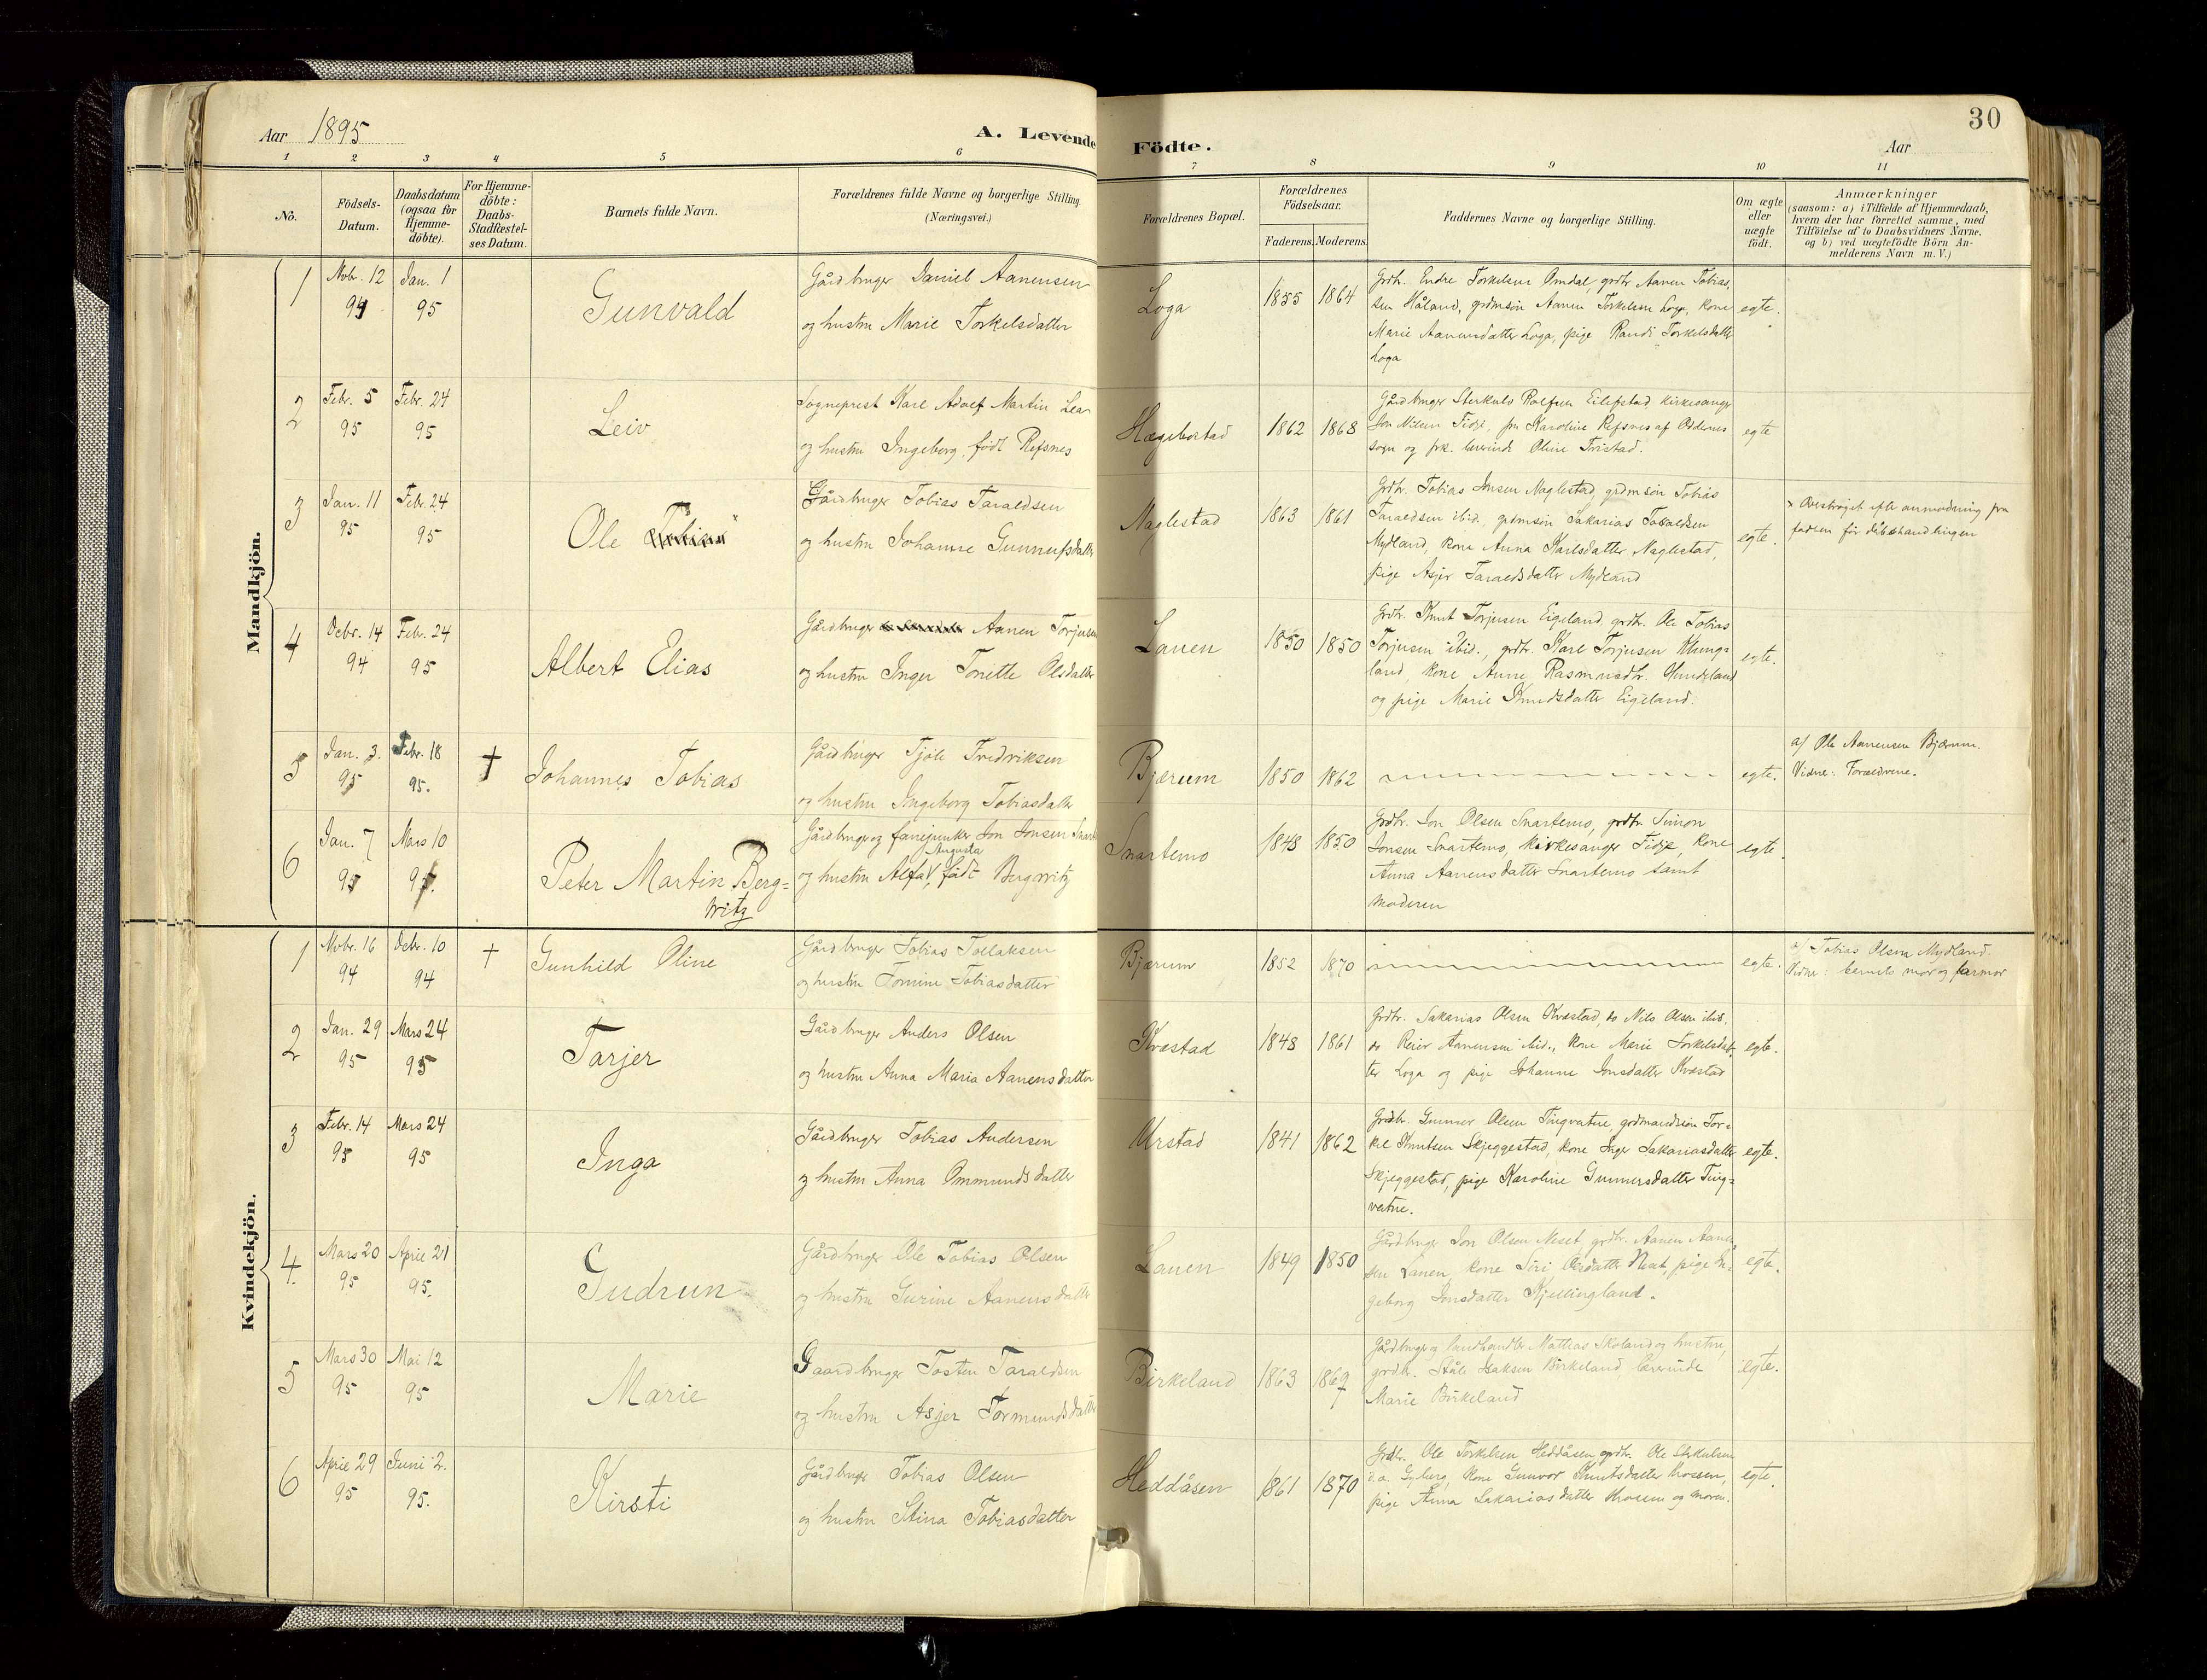 30
Aar 1895
A. Levende Födte.
Aar
1 2 3 4 5 6 7 8 9 10 11
No.
Födsels-
Datum.
Daabsdatum
(ogsaa for
Hjemme-
döbte).
For Hjemme-
döbte:
Daabs-
Stadfæstel-
ses Datum.
Barnets fulde Navn.
Forældrenes fulde Navne og borgerlige Stilling.
(Næringsvei.)
Forældrenes Bopæl.
Forældrenes
Födselsaar.
Faderens. Moderens.
Faddernes Navne og borgerlige Stilling.
Om ægte
eller
uægte
födt.
Anmærkninger
(saasom: a) i Tilfælde af Hjemmedaab,
hvem der har forrettet samme, med
Tilföielse af to Daabsvidners Navne,
og b) ved uægtefödte Börn An-
melderens Navn m. V.)
Mandkjön.
1
Nobr. 12
94
Jan. 1
95
Gunvald
Gårdbruger Daniel Aanensen
og hustru Marie Torkelsdatter
Loga
1855 1864
Grdbr. Endre Torkelsen Omdal, grdbr Aanen Tobias-
sen Håland, grdmsøn Aanen Torkelsen Loga, kone
Marie Aanensdatter Loga, pige Randi Torkelsdatter
Loga
egte.
2
Febr. 5
95
Febr. 24
95
Leiv
Sogneprest Karl Adolf Martin
og hustru Ingeborg, født Refsnes
Hægebostad
1862 1868
Gårdbruger Sterkulv Rolfsen Eilefstad, kirkesanger
Jon Nilsen Tidje, fru Karoline Refsnes af Oddernes
sogn og frk. lærerinde Oline Tristad.
egte
3
Jan. 11
95
Febr. 24
95
Ole Tobias ×
Gårdbruger Tobias Taraldsen
og hustru Johanne Gunnufsdatter
Naglestad
1863 1861
Grdbr. Tobias Jensen Naglestad, grdmsøn Tobias
Taraldsen ibid., grdmsøn Sakarias Taraldsen
Mydland, kone Anna Karlsdatter Naglestad,
pige Asjer Taraldsdatter Mydland
egte.
× Overstrøget efter anmodning fra
fadren før dåbshandlingen
4
Debr. 14
94
Febr. 24
95
Albert Elias
Gårdbruger Aanen Torjusen
og hustru Inger Tonette Olsdatter
Lauen
1850 1850
Grdbr. Knut Torjusen Eigeland, grdbr. Ole Tobias
Torjusen ibid., grdbr. Karl Torjusen Klung-
land, kone Anne Rasmusdtr.
og pige Marie Knudsdatter Eigeland.
egte.
5
Jan. 3.
95
Febr. 18
95.
†
Johannes Tobias
Gårdbruger Tjøle Fredriksen
og hustru Ingeborg Tobiasdatter
Bjærum
1850 1862
egte.
a/ Ole Aanensen Bjærum.
Vidne: Forældrene.
6
Jan. 7
95
Mars 10
95.
Peter Martin Berg=
witz
Gårdbruger og fanejunker Jon Jonsen
Augusta
og hustru Alfa, født Bergwitz
Snartemo
1848 1850
Grdbr. Jon Olsen Snartemo, grdbr Simon
Jonsen Snartemo, kirkesanger Tidje, kone
Anna Aanensdatter Snartemo samt
moderen
egte.
Kvindekjön.
1
Nobr. 16
94
Debr. 10
94
†
Gunhild Oline
Gårdbruger Tobias Tollaksen
og hustru Tomine Tobiasdatter
Bjærum
1852 1870
egte.
a/ Tobias Olsen Mydland.
Vidne: barnets mor og farmor
2
Jan. 29
95
Mars 24
95
Tarjer
Gårdbruger Anders Olsen
og hustru Anna Maria Aanensdatter
Kvastad
1848 1861
Grdbr. Sakarias Olsen Kvastad, do Nils Olsen ibid.,
do Reier Aanensen ibid., kone Marie Torkelsdat-
ter Loga og pige Johanne Jonsdatter Kvastad
egte.
3
Febr. 14
95
Mars 24
95
Inga
Gårdbruger Tobias Andersen
og hustru Anna Ommundsdatter
Urstad
1841 1862
Grdbr. Gunner Olsen Tingvatne, grdmandssøn Tor-
kel Knutsen Skjeggestad, kone Inger Sakariasdatter
Skjeggestad, pige Karoline Gunnersdatter Ting=
vatne.
egte.
4.
Mars 20
95
April 21
95.
Gudrun
Gårdbruger Ole Tobias Olsen
og hustru Gurine Aanensdatter
Lauen
1849 1850
Gårdbruger Jon Olsen Neset, grdbr. Aanen Aanen-
sen Lauen, kone Siri Olsdatter Neset, pige In-
geborg Jonsdatter Kjellingland.
egte.
5
Mars 30
95
Mai 12
95
Marie
Gaardbruger Tosten Taraldsen
og hustru Asjer Tormundsdatter
Birkeland
1863 1869
Gårdbruger og landhandler Mattias Skoland og hustru,
grdbr. Ståle Isaksen Birkeland, lærerinde
Marie Birkeland
egte.
6
April 29
95
Juni 2.
95.
Kirsti
Gårdbruger Tobias Olsen
og hustru Stina Tobiasdatter
Heddåsen
1861 1870
Grdbr. Ole Torkelsen Heddåsen, grdbr. Ole Sterkulsen
d.a. Gyberg, kone Gunvor Knutsdatter
pige Anna Sakariasdatter og moren.
egte.